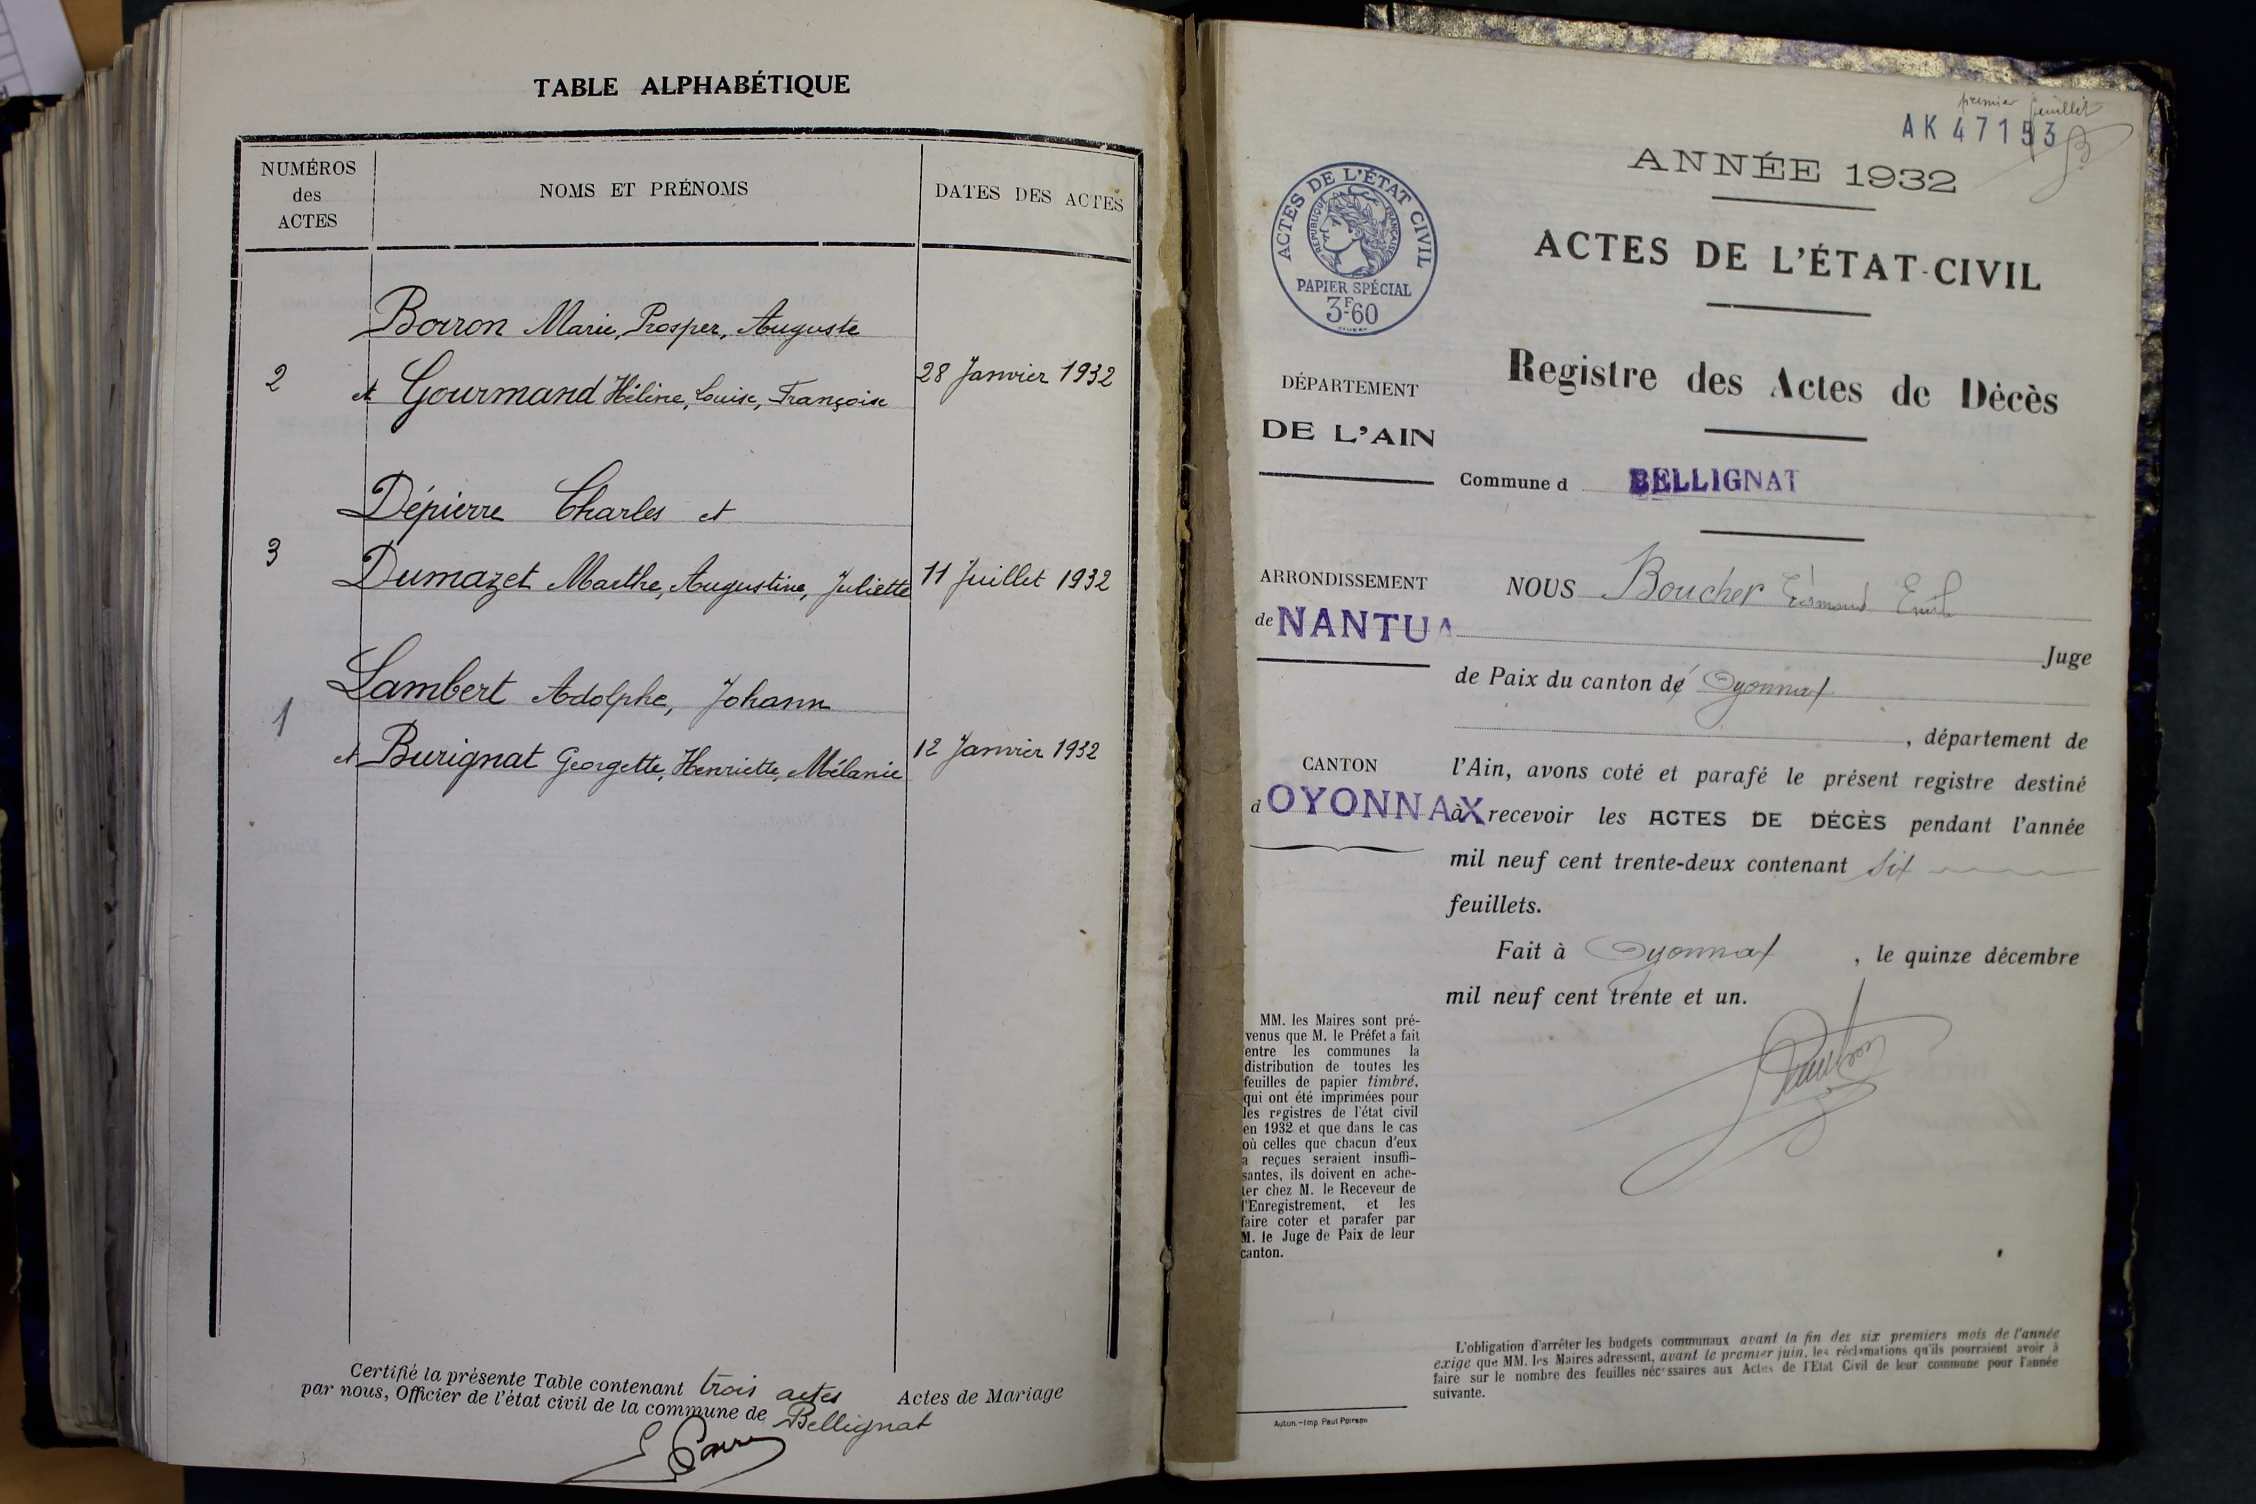 TABLE ALPHABÉTIQUE
NUMÉROS
des
ACTES
NOMS ET PRÉNOMS
DATES DES ACTES
Borron Marie, Prosper, Auguste
2
et Gourmand Hélène, Louise, Françoise
28 Janvier 1932
Dépierre Charles et
3
Dumazet Marthe, Augustine, Juliette
11 Juillet 1932
Lambert Adolphe, Johann
1
et Burignat Georgette, Henriette, Mélanie
12 Janvier 1932
Certifié la présente Table contenant trois actes Actes de Mariage
par nous, Officier de l'état civil de la commune de Bellignat
premier feuillet
AK 47153
ANNÉE 1932
ACTES DE L'ÉTAT CIVIL
RÉPUBLIQUE FRANÇAISE
PAPIER SPÉCIAL
3F60
ACTES DE L'ÉTAT-CIVIL
Registre des Actes de Décès
DÉPARTEMENT
DE L'AIN
Commune d BELLIGNAT
ARRONDISSEMENT
de NANTUA
CANTON
d OYONNAX
NOUS Boucher
Juge
de Paix du canton d Oyonnax
, département de
l'Ain, avons coté et parafé le présent registre destiné
à recevoir les ACTES DE DÉCÈS pendant l'année
mil neuf cent trente-deux contenant six
feuillets.
Fait à Oyonnax , le quinze décembre
mil neuf cent trente et un.
MM. les Maires sont pré-
venus que M. le Préfet a fait
entre les communes la
distribution de toutes les
feuilles de papier timbré,
qui ont été imprimées pour
les registres de l'état civil
en 1932 et que dans le cas
où celles que chacun d'eux
a reçues seraient insuffi-
santes, ils doivent en ache-
ter chez M. le Receveur de
l'Enregistrement, et les
faire coter et parafer par
M. le Juge de Paix de leur
canton.
L'obligation d'arrêter les budgets communaux avant la fin des six premiers mois de l'année
exige que MM. les Maires adressent, avant le premier juin, les réclamations qu'ils pourraient avoir à
faire sur le nombre des feuilles nécessaires aux Actes de l'Etat Civil de leur commune pour l'année
suivante.
Autun.-Imp. Paul Poirson